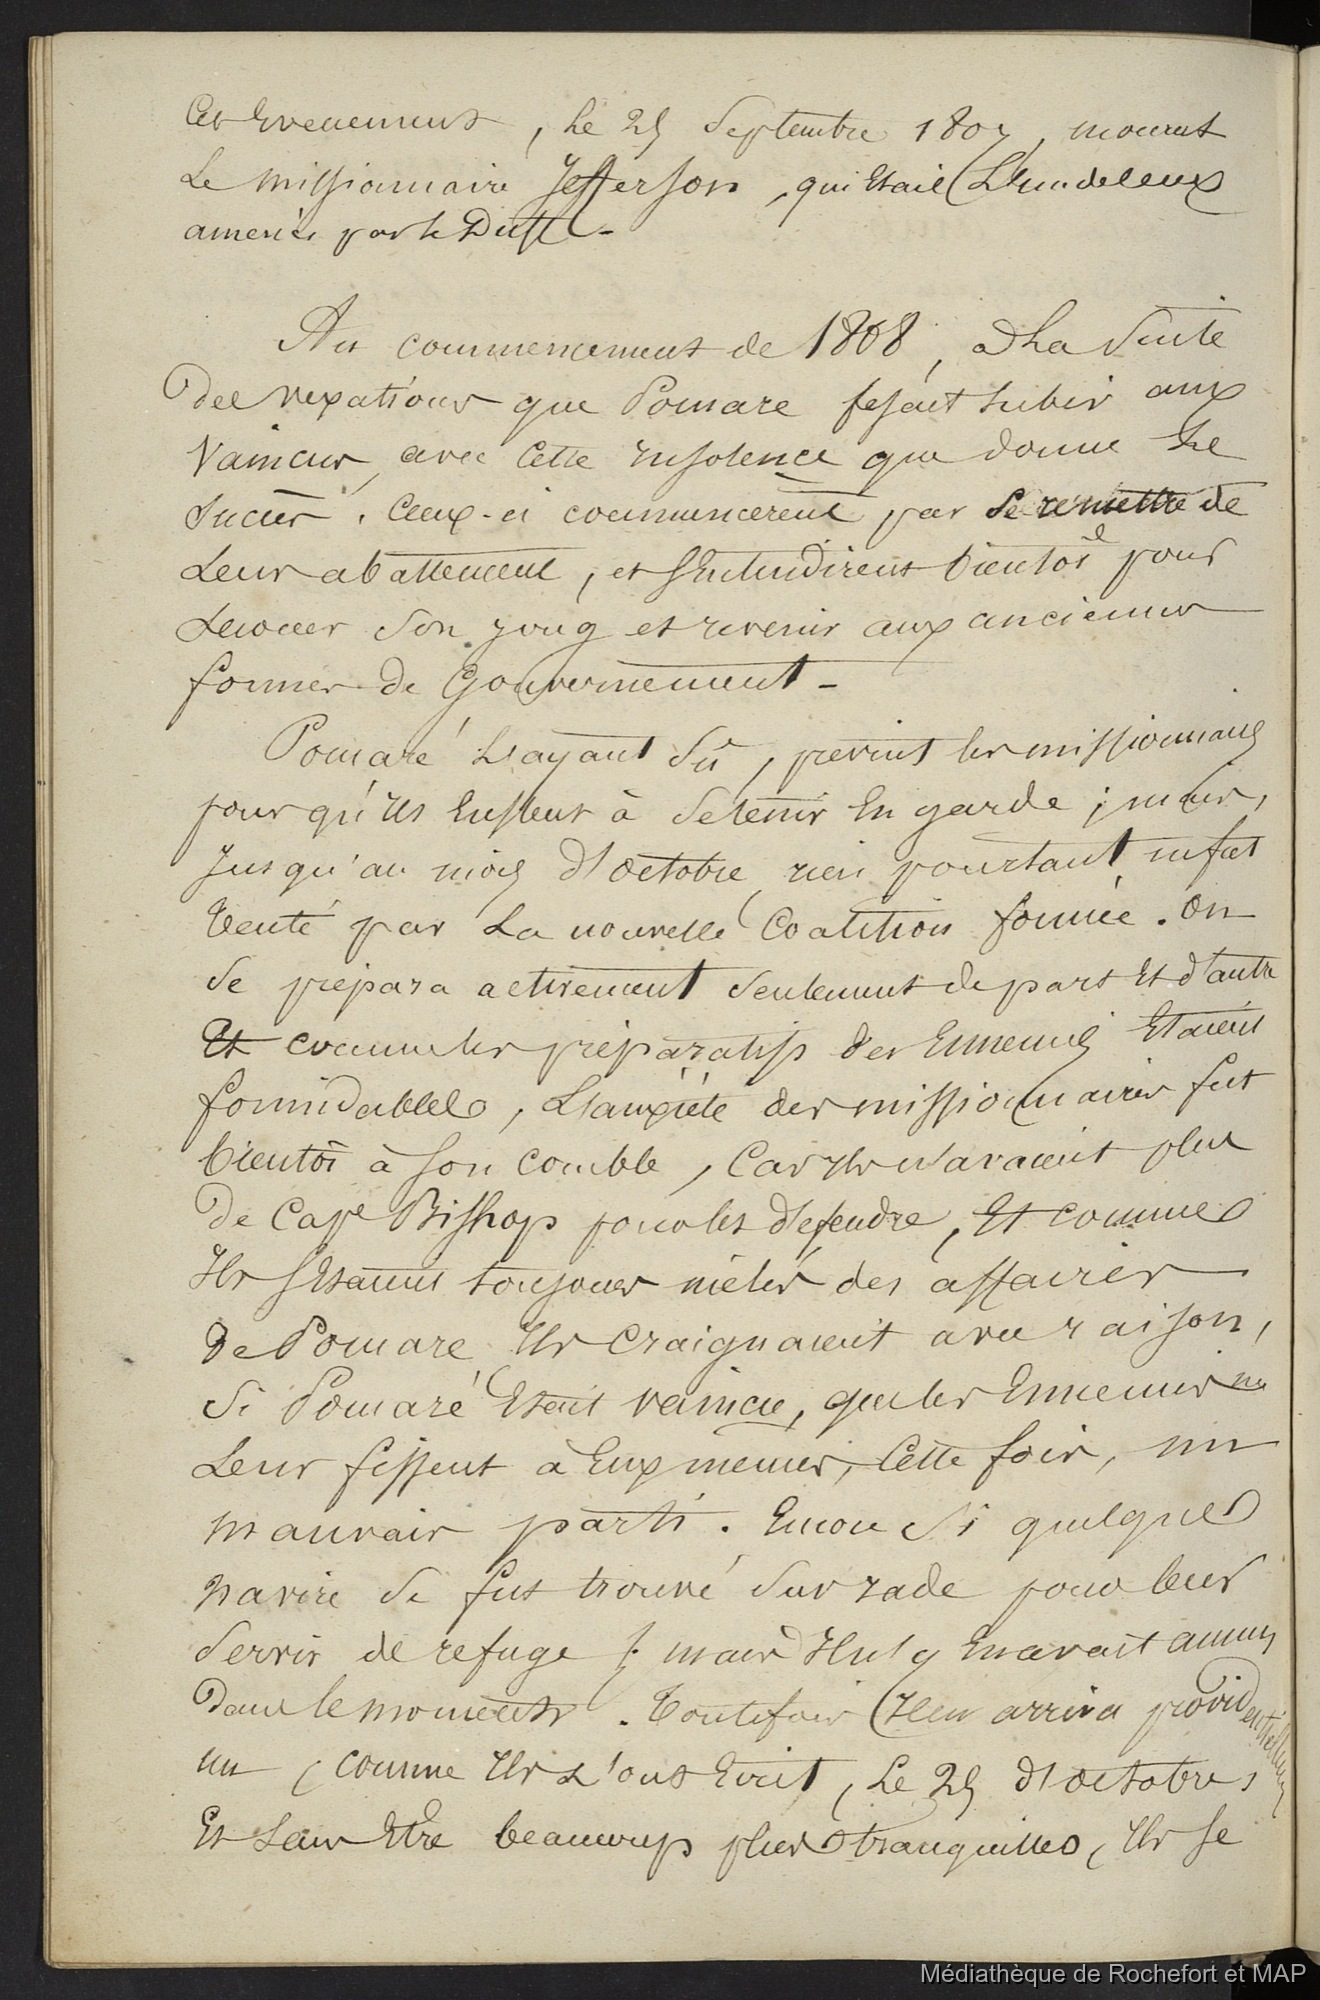 Ces Evenements, Le 25 Septembre 1807, mourut
Le missionnaire Jefferson, qui Etait L'un de ceux
amenés par le Duff -
Au commencement de 1808, à La Suite
Des vexations que Pomare fesait subir aux
Vaincus, avec Cette Insolence que donne Le
Succès, Ceux-ci commencerent par Se remettre de
Leur abattement, et S'Entendirent bientôt pour
Secouer Son joug et revenir aux anciennes
formes de Gouvernement -
Pomaré L'ayant Sû, prévint les missionnaires
pour qu'Ils Eussent à Se tenir En garde ; mais,
Jusqu'au mois d'octobre, rien pourtant ne fut
Tenté par La nouvelle Coalition formée. On
Se prépara activement Seulement de part Et d'autre
Et comme les préparatifs des Ennemis Etaient
formidables, L'anxiété des missionnaires fut
bientôt à Son comble, Car Ils n'avaient plus
De Cape Bishop pour les défendre, Et comme
Ils S'Etaient toujours mêlés des affaires
De Pomare, Ils Craignaient avec raison,
Si Pomaré Etait vaincu, que les Ennemis ne
Leur fissent à Eux mêmes, Cette fois, un
mauvais parti. Encore Si quelque
navire Se fut trouvé Sur rade pour leur
Servir de refuge !. mais Il n'y En avait aucun
Dans le moment. Toutefois Il en arriva providentiellement
un, comme Ils L'ont Ecrit, Le 25 d'octobre,
Et Sans Etre beaucoup plus tranquilles, Ils Se
Médiathèque de Rochefort et MAP